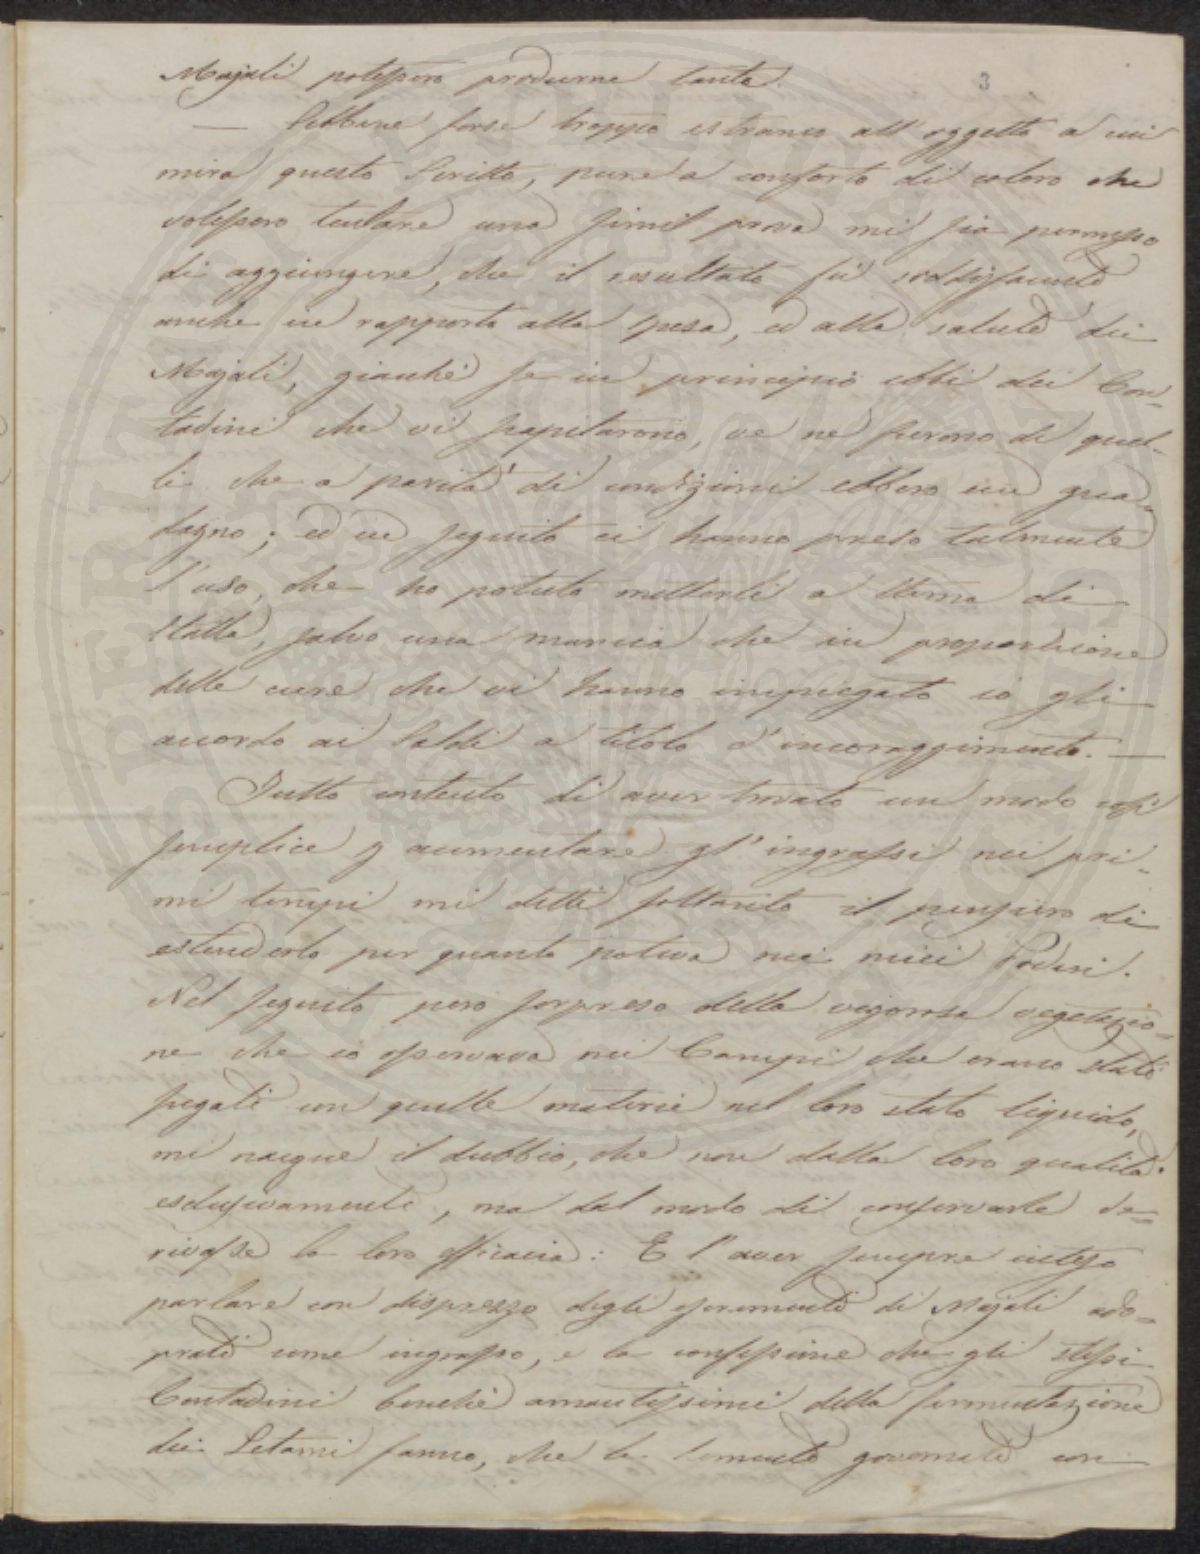 3
Majali potessero produrne tanta.
— Sebbene forse troppo estraneo all'oggetto a cui
mira questo Scritto, pure a conforto di coloro che
volessero tentare una simil prova mi sia permesso
di aggiungere, che il resultato fù soddisfacente
anche in rapporto alla spesa, ed alla salute dei
Majali, gianchè se in principio ebbi dei Con-
tadini che vi scapitarono, ve ne furono di quel-
li che a parità di condizioni ebbero un gua-
dagno; ed in seguito ci hanno preso talmente
l'uso, che ho potuto metterli a stima di
stalla, salvo una mancia che in proporzione
delle cure che vi hanno impiegato io gli
accordo ai Saldi a titolo d'incoraggimento. —
Tutto contento di aver trovato un modo così
semplice p aumentare gl'ingrassi nei pri-
mi tempi mi detti soltanto il pensiero di
estenderlo per quanto poteva nei miei Poderi.
Nel seguito però sorpreso della vigorosa vegetazio-
ne che io osservava nei Campi che erano stati
segati con quelle materie nel loro stato liquido,
mi nacque il dubbio, che non dalla loro qualità
esclusivamente, ma dal modo di conservarle de-
rivasse la loro efficacia: E l'aver sempre inteso
parlare con disprezzo degli escrementi di Majali ado-
prati come ingrasso, e la confessione che gli stessi
Contadini benchè amantissimi della fermentazione
dei Letami fanno, che le semente governate con